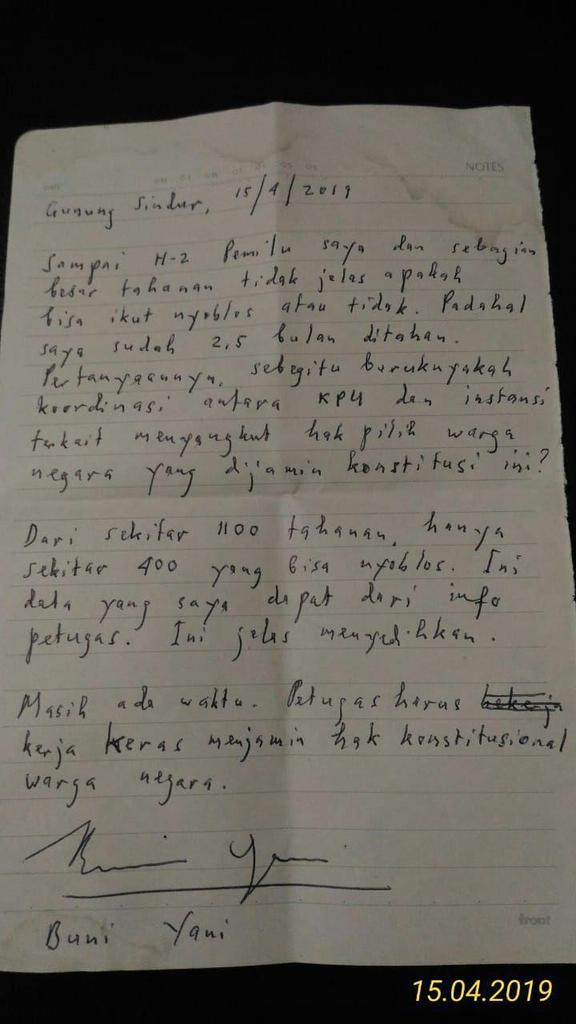 NOTES
Gunung Sindur, 15/4/2019
Sampai H-2 Pemilu saya dan sebagian
besar tahanan tidak jelas apakah
bisa ikut nyoblos atau tidak. Padahal
saya sudah 2,5 bulan ditahan.
Pertanyaannya, sebegitu buruknyakah
koordinasi antara KPU dan instansi
terkait menyangkut hak pilih warga
negara yang dijamin konstitusi ini?
Dari sekitar 1100 tahanan, hanya
sekitar 400 yang bisa nyoblos. Ini
data yang saya dapat dari info
petugas. Ini jelas menyedihkan.
Masih ada waktu. Petugas harus bekerja
kerja keras menjamin hak konstitusional
warga negara.
Buni Yani
Buni Yani
front
15.04.2019